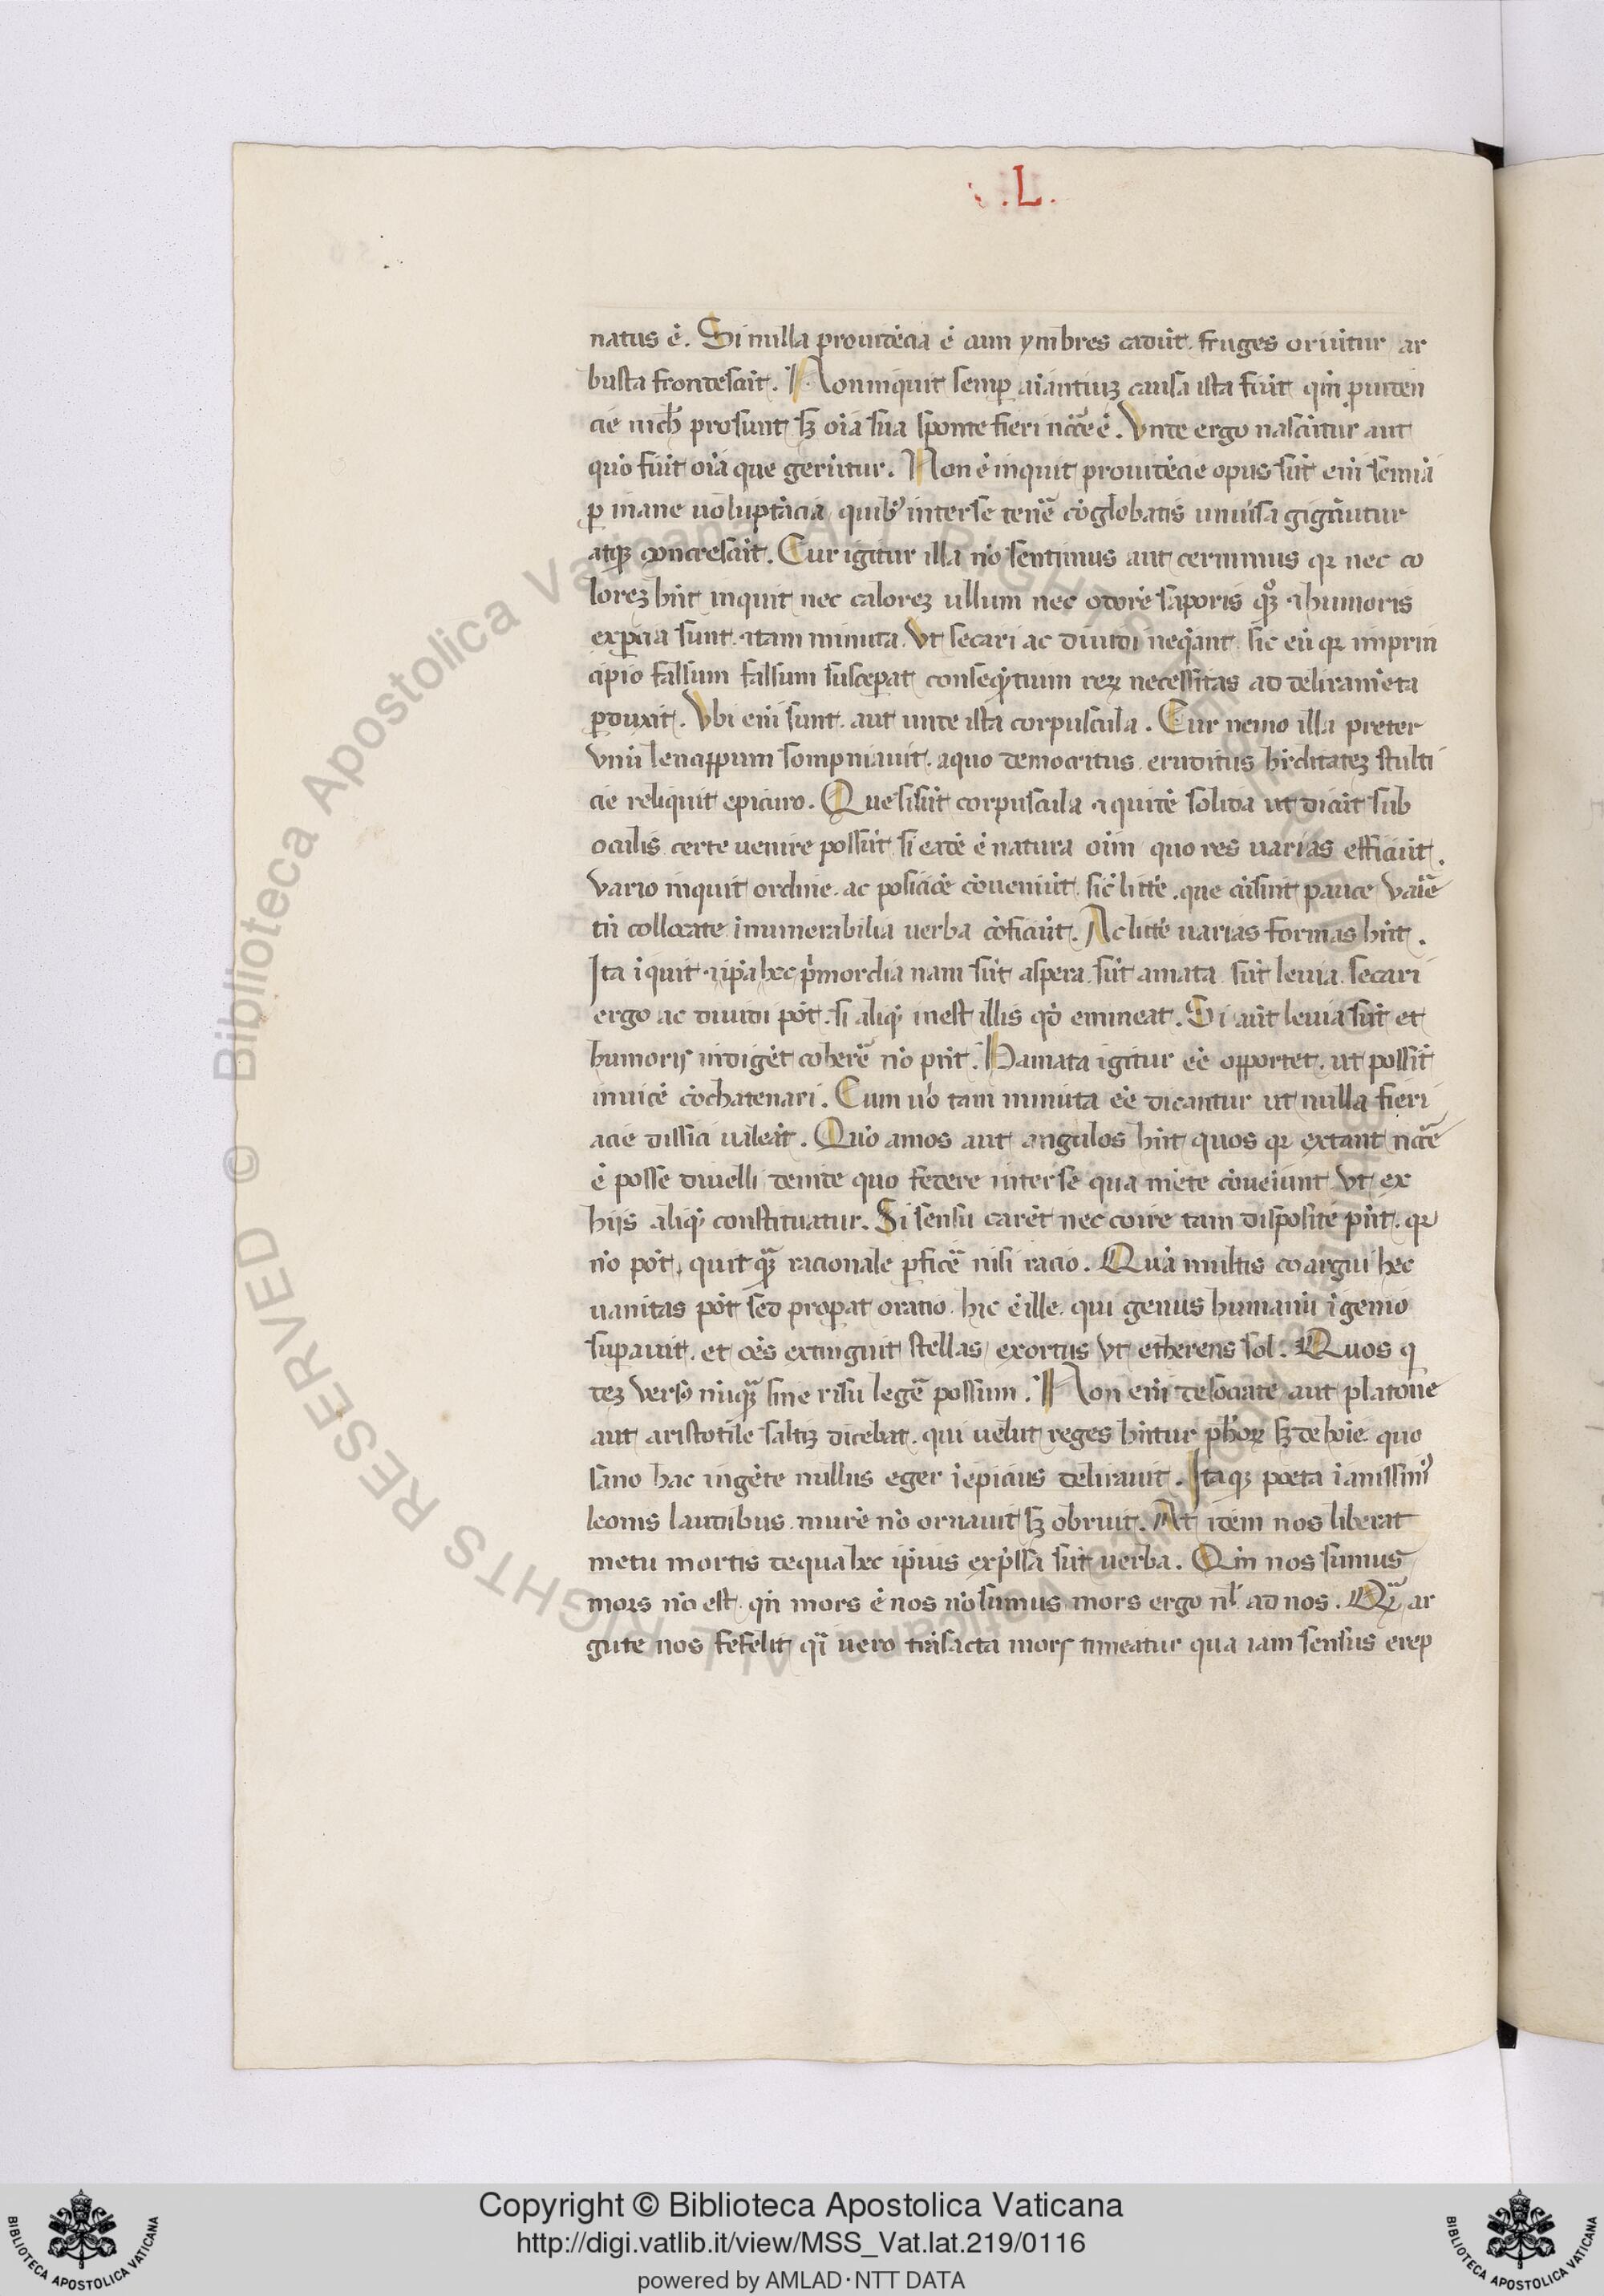 .L.
natus ē. Si nulla prouidēcia ē cum ymbres cadūt fruges oriūtur ar
busta frondescūt. Non inquit semꝑ aīantiuꝫ causa ista fiūt qm̄ puiden
cie nichl prosunt sꝫ oīa sua sponte fieri nccē ē. Vnde ergo nascūtur aut
quō fiūt oīa que gerūtur. Non ē inquit prouidēcie opus sūt em̄ semīa
ꝑ inane uoluptācia quibꝰ inter se temē cōglobatis uniūsa gignūtur
atqꝫ concrescūt. Cur igitur illa nō sentimus aut cernimus qꝛ nec co
loreꝫ hn̄t inquit nec caloreꝫ ullum nec odorē saporis qꝫ ⁊ humoris
exꝑcia sunt ⁊ tam minuta Vt secari ac diuidi neq̄ant sic eū qꝛ in prin
cipio falsum falsum susceꝑat conseq̄ntium reꝝ necessitas ad deliramēta
ꝑduxit. Vbi em̄ sunt aut unde ista corpuscula. Cur nemo illa preter
Vnū leucippum sompniauit aquo democritus eruditus hr̄ditateꝫ stulti
cie reliquit epicuro. Que si sūt corpuscula ⁊ quidē solida ut dicūt sub
oculis certe uenire possūt si eadē ē natura oīm quo res uarias efficiūt.
Vario inquit ordine ac posicōe cōueniūt sic litte que cū sint pauce Vaīe
tn̄ collocate inumerabilia uerba cōficiūt. Ac litte uarias formas hn̄t.
Ita īquit ⁊ ip̄a hec pͥmordia nam sūt aspera sūt amata sūt leuia secari
ergo ac diuidi pōt si aliqͩ inest illis qd̄ emineat. Si aūt leuia sūt et
humoris indigēt coherē nō pn̄t. Hamata igitur eē opportet ut possīt
inuicē cōchatenari. Cum uō tam minuta eē dicantur ut nulla fieri
acie dissici ualeāt. Quō amos aut angulos hn̄t quos qꝛ extant nccē
ē posse diuelli deinde quo federe inter se qua mēte cōueīunt Vt ex
hijs aliqͩ constituatur. Si sensu carēt nec coire tam disposite pn̄t qꝛ
nō pōt quitqꝫ racionale ꝑficē nisi racio. Quā multis coargui hec
uanitas pōt sed properat oratio hic ē ille qui genus humanū īgenio
suꝑauit et oēs extinguit stellas exortus Vt ethereus sol. Quos q
deꝫ Versꝰ nūqꝫ sine risu legē possum. Non em̄ de socrate aut platone
aut aristotile saltiꝫ dicebat qui uelut reges hn̄tur phōꝝ sꝫ de hoīe quo
sano hac ingēte nullus eger īepicius delirauit. Itaqꝫ poeta īanissimꝰ
leonis laudibus murē nō ornauit sꝫ obruit. At idem nos liberat
metu mortis de qua hec ip̄ius expͥssa sūt uerba. Qn̄ nos sumus
mors nō est qn̄ mors ē nos nō sumus mors ergo nl̄ ad nos. Qꝫ ar
gute nos fefelit qī uero trāsacta mors timeatur qua iam sensus erep
© Biblioteca Apostolica Vaticana ALL RIGHTS RESERVED
Copyright © Biblioteca Apostolica Vaticana
http://digi.vatlib.it/view/MSS_Vat.lat.219/0116
powered by AMLAD·NTT DATA
BIBLIOTECA APOSTOLICA VATICANA
BIBLIOTECA APOSTOLICA VATICANA